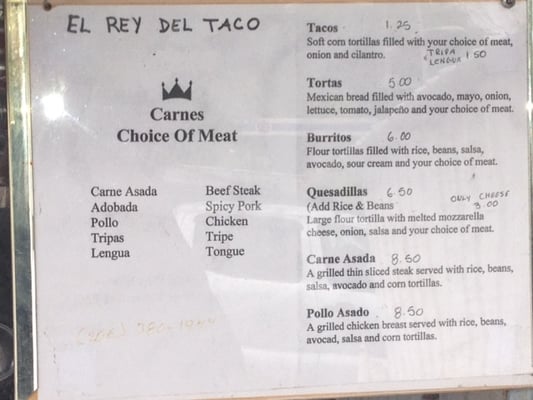 EL REY DEL TACO
Carnes
Choice Of Meat
Carne Asada Beef Steak
Adobada Spicy Pork
Pollo Chicken
Tripas Tripe
Lengua Tongue
Tacos 1.25
Soft corn tortillas filled with your choice of meat,
onion and cilantro. TRIPA
LENGUA 1 50
Tortas 5.00
Mexican bread filled with avocado, mayo, onion,
lettuce, tomato, jalapeño and your choice of meat.
Burritos 6.00
Flour tortillas filled with rice, beans, salsa,
avocado, sour cream and your choice of meat.
Quesadillas 6.50
(Add Rice & Beans ONLY CHEESE
3.00
Large flour tortilla with melted mozzarella
cheese, onion, salsa and your choice of meat.
Carne Asada 8.50
A grilled thin sliced steak served with rice, beans,
salsa, avocado and corn tortillas.
Pollo Asado 8.50
A grilled chicken breast served with rice, beans,
avocad, salsa and corn tortillas.